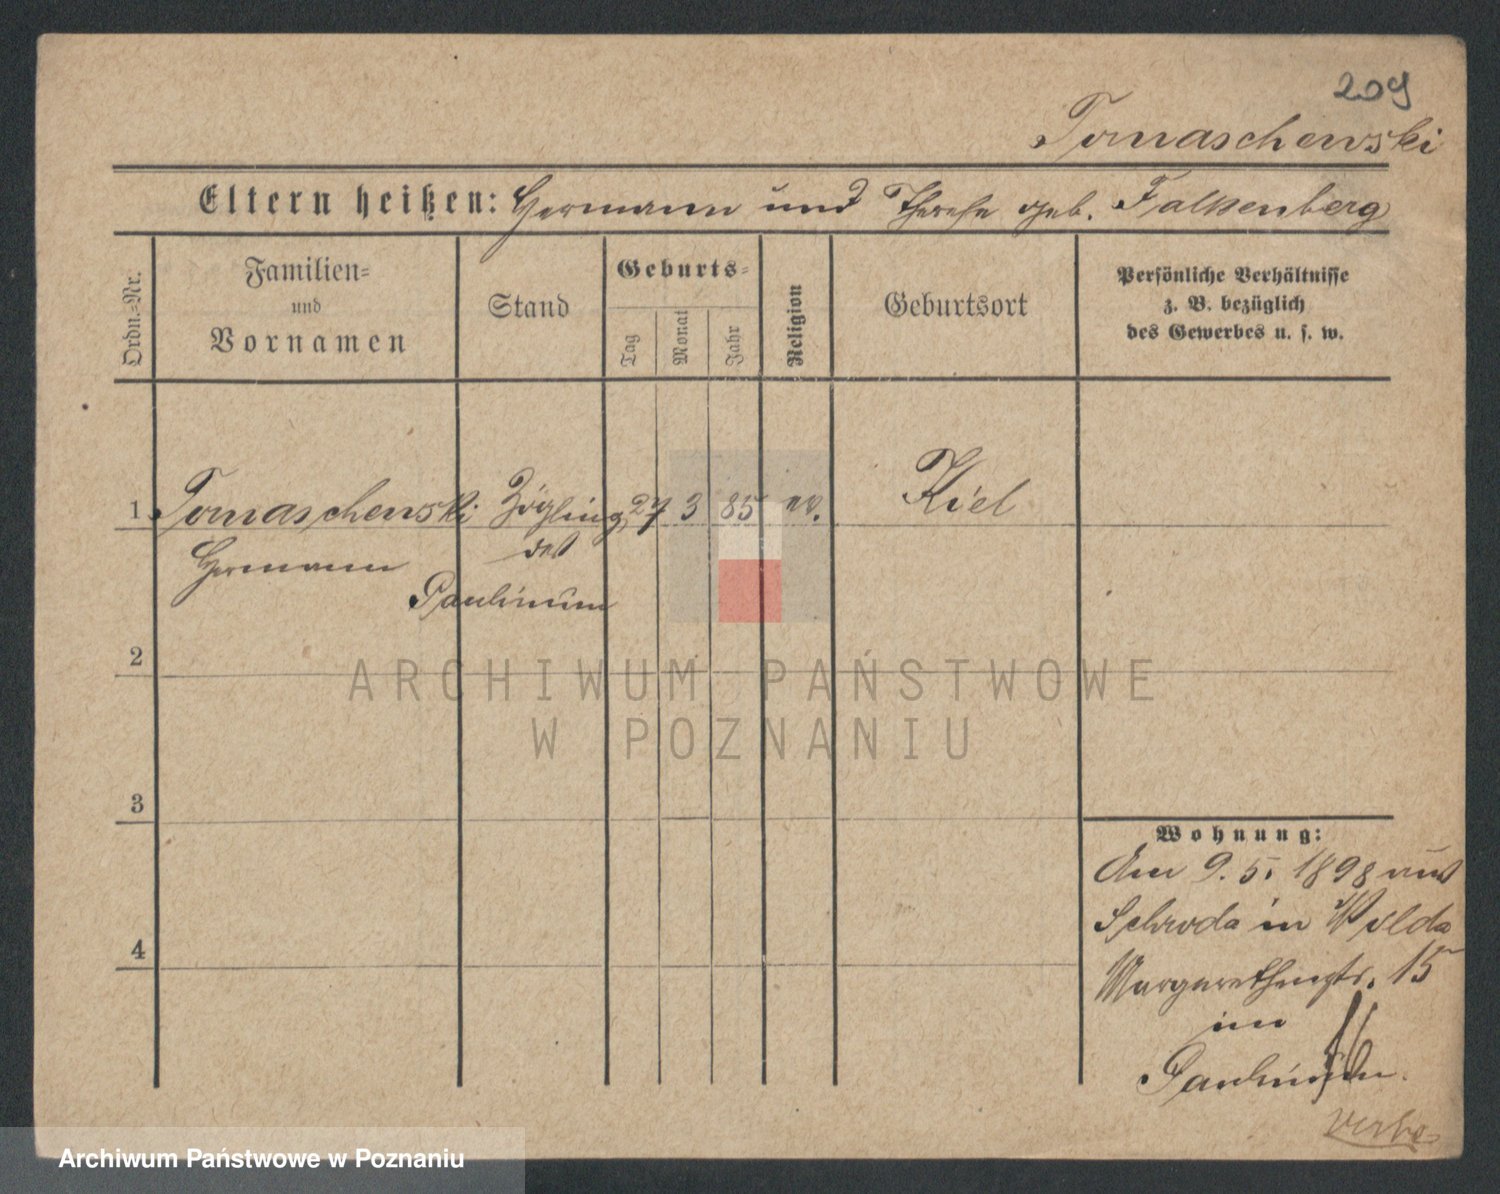 209
Tomaschewski
Eltern heißen: Hermann und Therese geb. Falkenberg
Ordn.=Nr.
Familien=
und
Vornamen
Stand
Geburts=
Tag
Monat
Jahr
Religion
Geburtsort
Persönliche Verhältnisse
z. B. bezüglich
des Gewerbes u. s. w.
1 Tomaschewski Zögling 27 3 85 ev. Kiel
Hermann des
Paulinum
2
ARCHIWUM PAŃSTWOWE
W POZNANIU
3
Wohnung:
Am 9. 5. 1898 aus
Schroda in Wilda
Margarethenstr. 15
im
Paulinum.
4
Archiwum Państwowe w Poznaniu